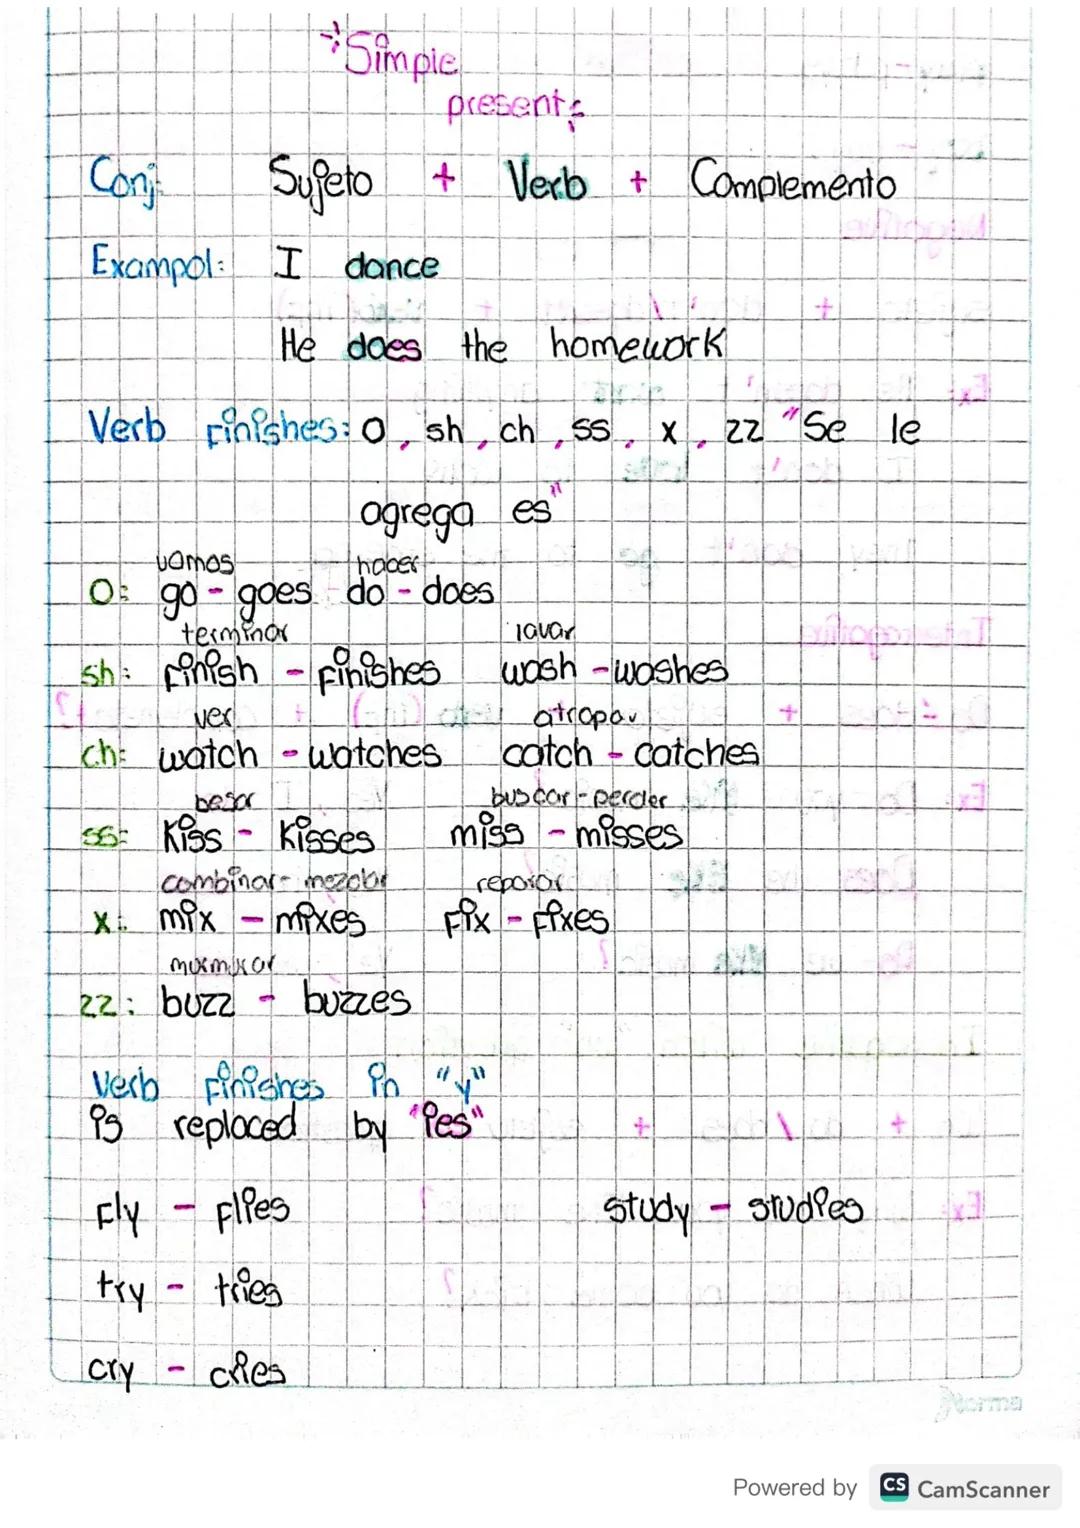 Simple
present
Conj: Sujeto + Verb + Complemento
Exampol: I dance
He does the homework
Verb finishes: o, sh, ch, ss, x, zz "Se le
agrega es"
vamos hacer
O: go - goes do - does
terminar lavar
sh: finish - finishes wash - washes
ver atrapar
ch: watch - watches catch - catches
besar buscar - perder
ss: kiss - kisses miss - misses
combinar - mezclar reparar
x: mix - mixes fix - fixes
murmurar
zz: buzz - buzzes
Verb finishes in "y"
is replaced by "ies"
fly - flies study - studies
try - tries
cry - cries
Norma
Powered by CS CamScanner